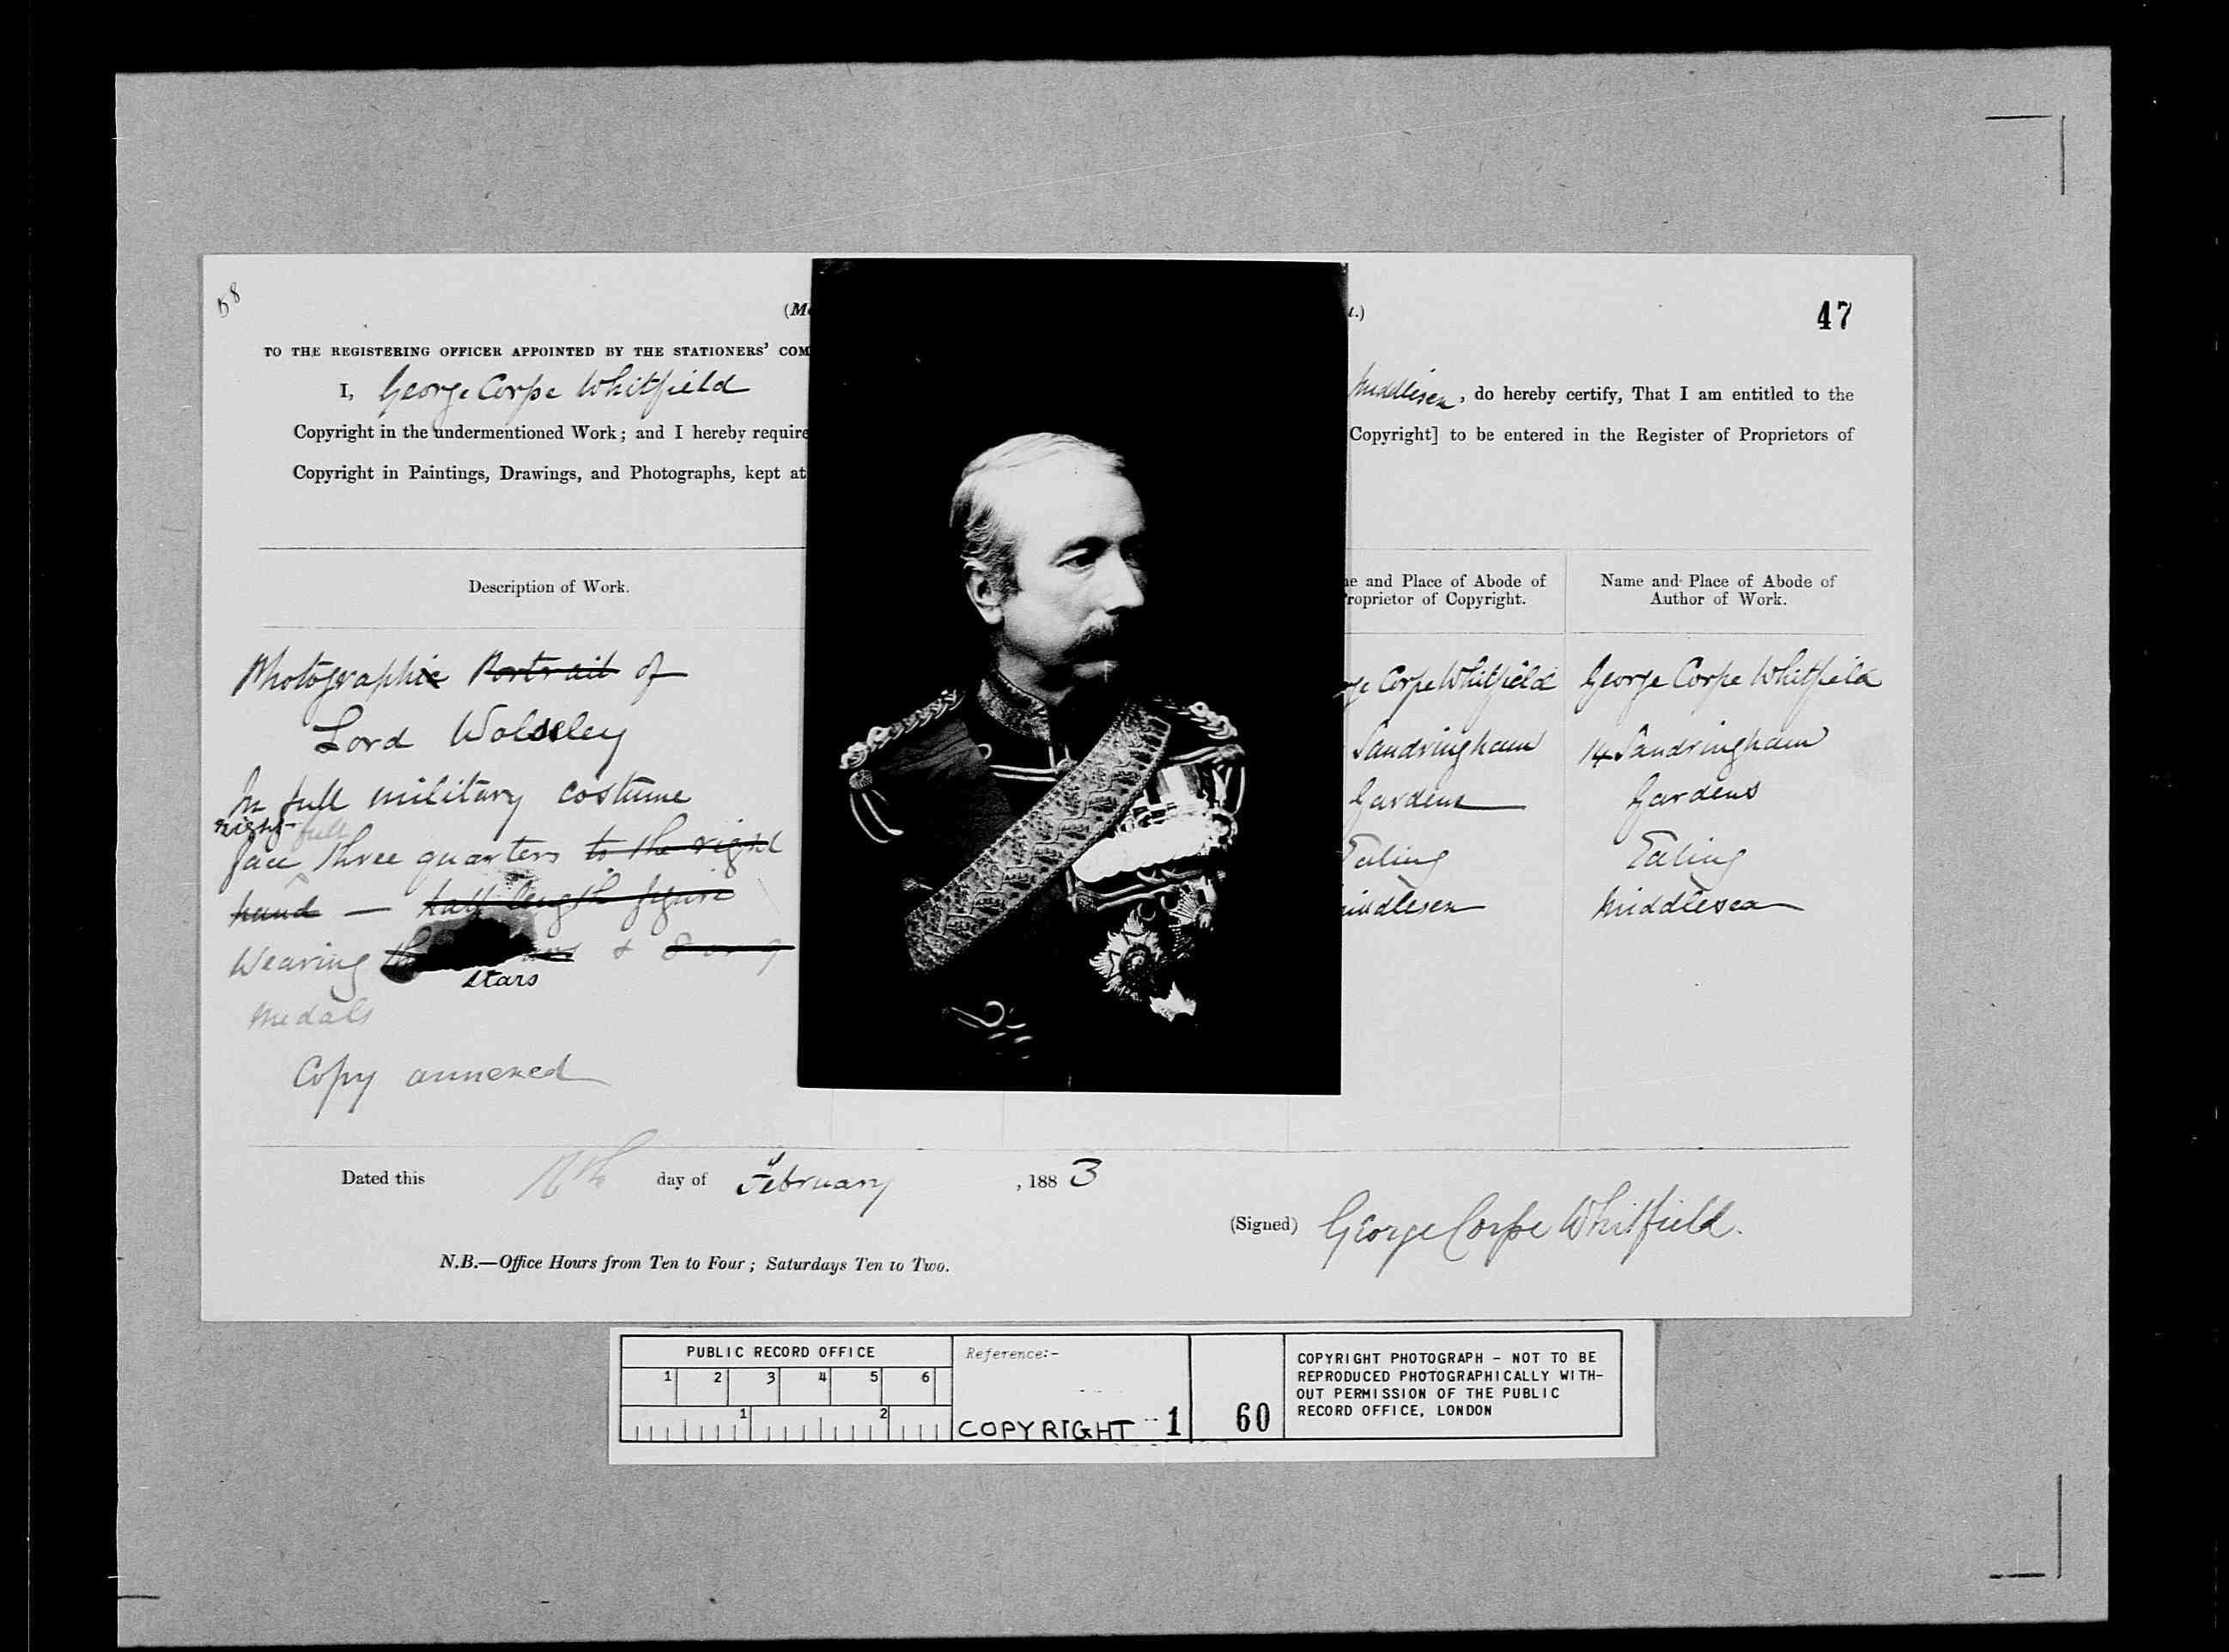 58
47
(M
t.)
TO THE REGISTERING OFFICER APPOINTED BY THE STATIONERS' COM
I, George Corpe Whitfield
Middlesex, do hereby certify, That I am entitled to the
Copyright in the undermentioned Work; and I hereby require
Copyright] to be entered in the Register of Proprietors of
Copyright in Paintings, Drawings, and Photographs, kept at
Description of Work.
e and Place of Abode of
roprietor of Copyright.
Name and Place of Abode of
Author of Work.
Photographic Portrait of
Lord Wolseley
In full military costume
right full
face three quarters to the right
hand — half length figure
Wearing & 8 or 9
stars
medals
Copy annexed
ge Corpe Whitfield
Sandringham
Gardens
Ealing
Middlesex
George Corpe Whitfield
14 Sandringham
Gardens
Ealing
Middlesex
Dated this day of February, 1883
(Signed) George Corpe Whitfield.
N.B.—Office Hours from Ten to Four; Saturdays Ten to Two.
PUBLIC RECORD OFFICE
1 2 3 4 5 6
1 2
Reference:-
COPYRIGHT 1
60
COPYRIGHT PHOTOGRAPH - NOT TO BE
REPRODUCED PHOTOGRAPHICALLY WITH-
OUT PERMISSION OF THE PUBLIC
RECORD OFFICE, LONDON